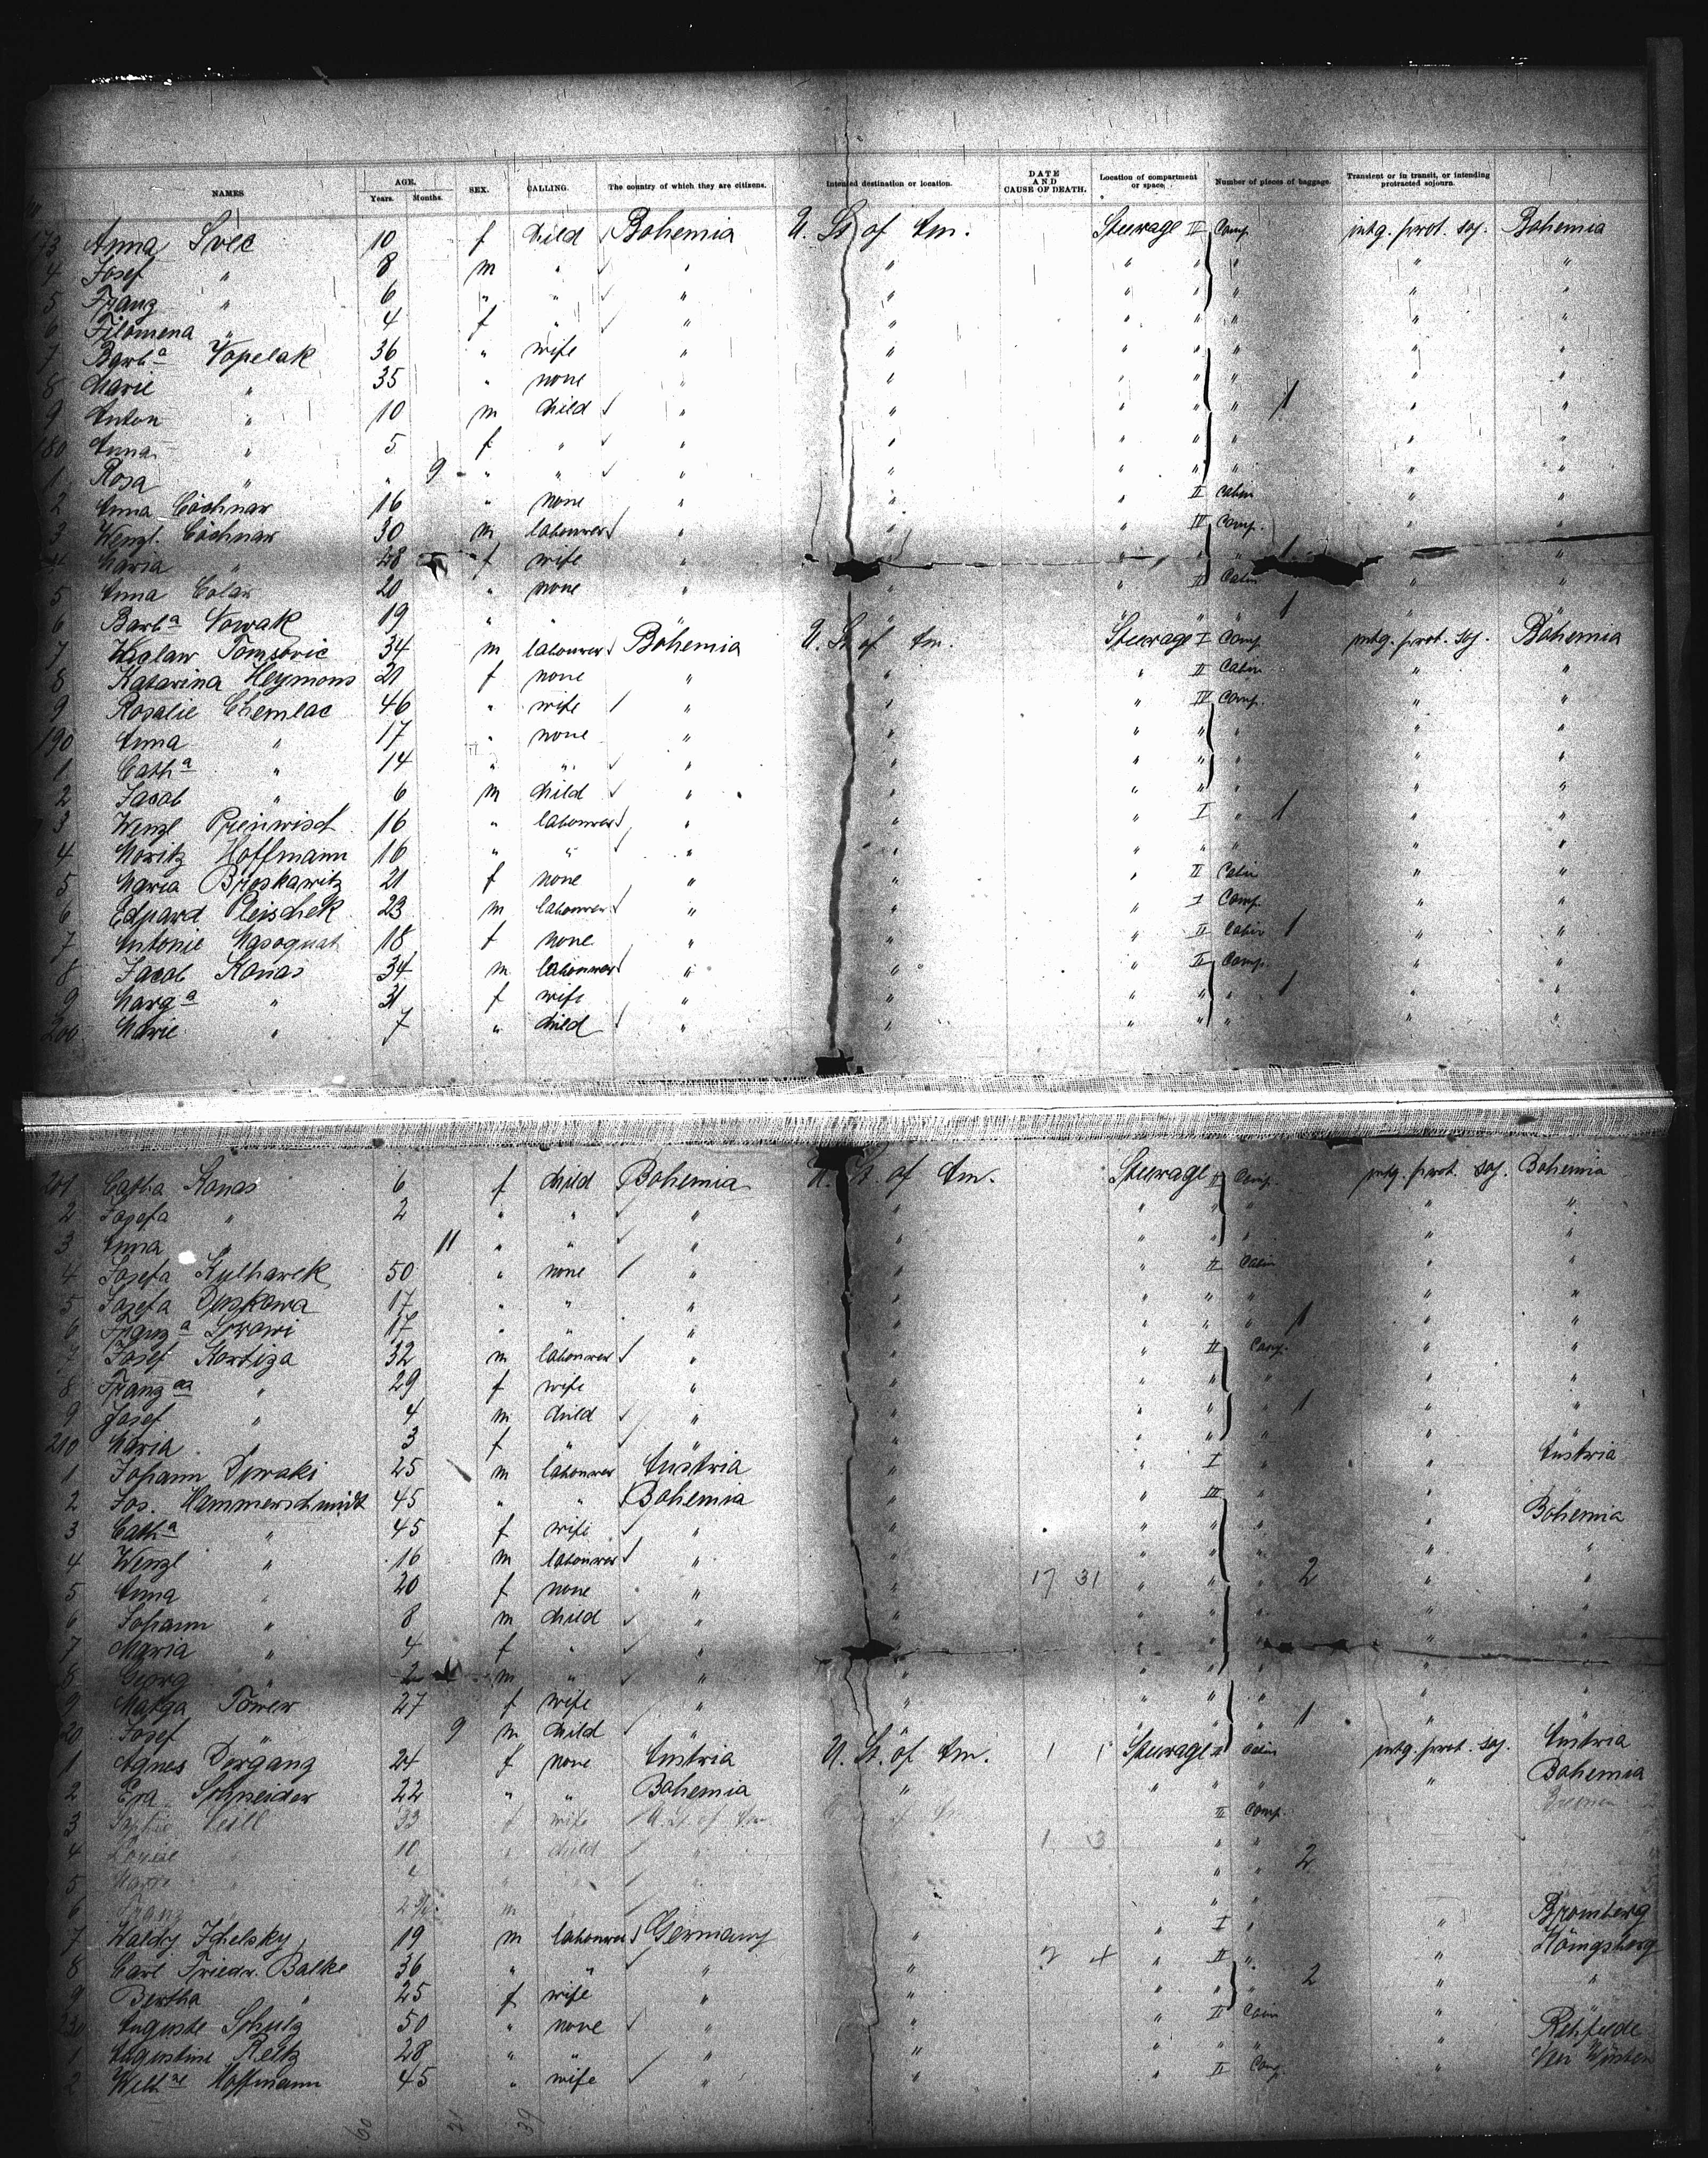 NAMES. AGE. Years. Months. SEX. CALLING. The country of which they are citizens. Intended destination or location. DATE AND CAUSE OF DEATH. Location of compartment or space. Number of pieces of baggage. Transient or in transit, or intending protracted sojourn.
173 Anna Svec 10 f child Bohemia U. St. of Am. Steerage IV Comp. intg. prot. soj. Bohemia
4 Josef " 8 m " " " " " " " "
5 Franz " 6 " " " " " " " " "
6 Filomena " 4 f " " " " " " " "
7 Barb.a Vopelak 36 " wife " " " " " " "
8 Marie " 35 " none " " " " " 1 " "
9 Anton " 10 m child " " " " " " "
180 Anna " 5 f " " " " " " " "
1 Rosa " " 9 " " " " " " " " "
2 Anna Cochnar 16 " none " " " II Cabin " "
3 Wenzl. Cochnar 30 m labourer " " " IV Comp. " "
4 Maria " 28 f wife " " " " " 1 " "
5 Anna Colar 20 " none " " " II Cabin " "
6 Barb.a Nowak 19 " " " 1 "
7 34 m labourer Bohemia U. St. of Am. Steerage I Comp intg. prot. soj. Bohemia
8 Katarina Heymons 21 f none " " " II Cabin " "
9 Rosalie Chemlac 46 " wife " " " IV Comp. " "
190 Anna " 17 " none " " " " " " "
1 Cath.a " 14 " " " " " " " " "
2 Jacob " 6 m child " " " " " " "
3 Wenzl 16 " labourer " " " I " 1 " "
4 Moritz Hoffmann 16 " " " " " " " " "
5 Maria 21 f none " " " II Cabin " "
6 Eduard Pleischek 23 m labourer " " " I Comp. " "
7 Antonie 18 f none " " " II Cabin 1 " "
8 Jacob Konas 34 m labourer " " " II Comp. " "
9 Marg.a " 31 f wife " " " " " 1 " "
200 Marie " 7 " child " " " " " " "
201 Catha Konas 6 f child Bohemia U. St. of Am. Steerage II Comp. intg. prot. soj. Bohemia
2 Josefa " 2 " " " " " " " " "
3 Anna " 11 " " " " " " " " "
4 Josefa Kulhawek 50 " none " " " II Cabin " "
5 Josefa 17 " " " " " " " " "
6 Franz.a 17 " " " " " " " 1 " "
7 Josef Kortiza 32 m labourer " " " II Comp. " "
8 Franz.ca " 29 f wife " " " " " " "
9 Josef " 4 m child " " " " " 1 " "
210 Maria " 3 f " " " " " " "
1 Johann 25 m labourer Austria " " I " " Austria
2 Jos. Hammerschmidt 45 " " Bohemia " " III " " Bohemia
3 Cath.a " 45 f wife " " " " " " "
4 Wenzl " 16 m labourer " " " " " 2 " "
5 Anna " 20 f none " " 17 31 " " " " "
6 Johann " 8 m child " " " " " " "
7 Maria " 4 f " " " " " " " "
8 Georg " 2 m " " " " " " "
9 27 f wife " " " " " 1 " "
20 Josef 9 m child " " " "
1 Agnes Dergang 24 f none Austria U. St. of Am. 1 1 Steerage II Cabin intg. prot. soj. Austria
2 Eva Schneider 22 " " Bohemia " " " " " Bohemia
3 Sophie 33 f wife U. St. of Am II Comp. Bremen
4 Louise 10 " child " 1 3 " " 2
5 "
6 Franz m
7 19 m labourer Germany " " I " " Bromberg
8 Carl Friedr. Balke 36 " " " " 2 4 " II " " Königsberg
9 Bertha " 25 f wife " " " " " 2 " "
230 Auguste Schulz 50 " none " " " II Cabin " Rehfelde
1 Augustine Reitz 28 " " " " " " " "
2 Hoffmann 45 " wife " " " II Comp. "
60 21 39